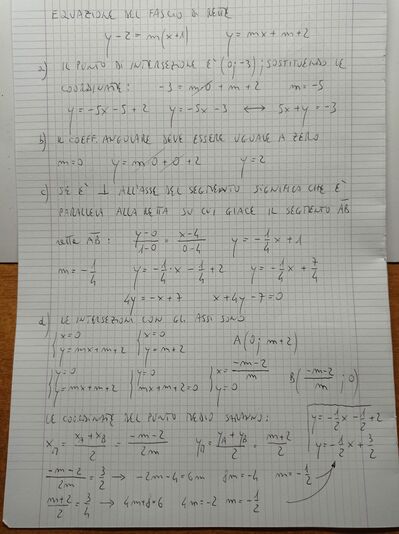 EQUAZIONE DEL FASCIO DI RETTE
y-2 = m(x+1) y = mx + m + 2
a) IL PUNTO DI INTERSEZIONE E' (0;-3); SOSTITUENDO LE
COORDINATE: -3 = m·0 + m + 2 m = -5
y = -5x - 5 + 2 y = -5x - 3 ⟷ 5x + y = -3
b) IL COEFF. ANGOLARE DEVE ESSERE UGUALE A ZERO
m=0 y = m·0 + 0 + 2 y = 2
c) SE E' ⊥ ALL'ASSE DEL SEGMENTO SIGNIFICA CHE E'
PARALLELA ALLA RETTA SU CUI GIACE IL SEGMENTO AB
retta AB: (y-0)/(1-0) = (x-4)/(0-4) y = -1/4 x + 1
m = -1/4 y = -1/4·x - 1/4 + 2 y = -1/4 x + 7/4
4y = -x + 7 x + 4y - 7 = 0
d) LE INTERSEZIONI CON GLI ASSI SONO
{x=0 {x=0 A(0; m+2)
{y=mx+m+2 {y=m+2
{y=0 {y=0 {x = (-m-2)/m B((-m-2)/m ; 0)
{y=mx+m+2 {mx+m+2=0 {y=0
LE COORDINATE DEL PUNTO MEDIO SARANNO: y = -1/2 x - 1/2 + 2
xM = (xA + xB)/2 = (-m-2)/2m yM = (yA + yB)/2 = (m+2)/2 y = -1/2 x + 3/2
(-m-2)/2m = 3/2 → -2m-4 = 6m 8m = -4 m = -1/2
(m+2)/2 = 3/4 → 4m+8=6 4m = -2 m = -1/2